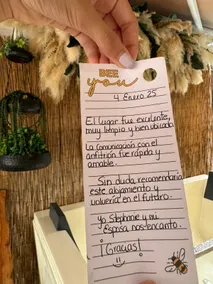 BEE
you
4 Enero 25
El lugar fue excelente,
muy limpio y bien ubicado
La comunicación con el
anfitrión fue rápida y
amable.
Sin duda recomendaría
este alojamiento y
volvería en el futuro.
Yo Stephane y mi
Esposa nos encanto.
¡Gracias!